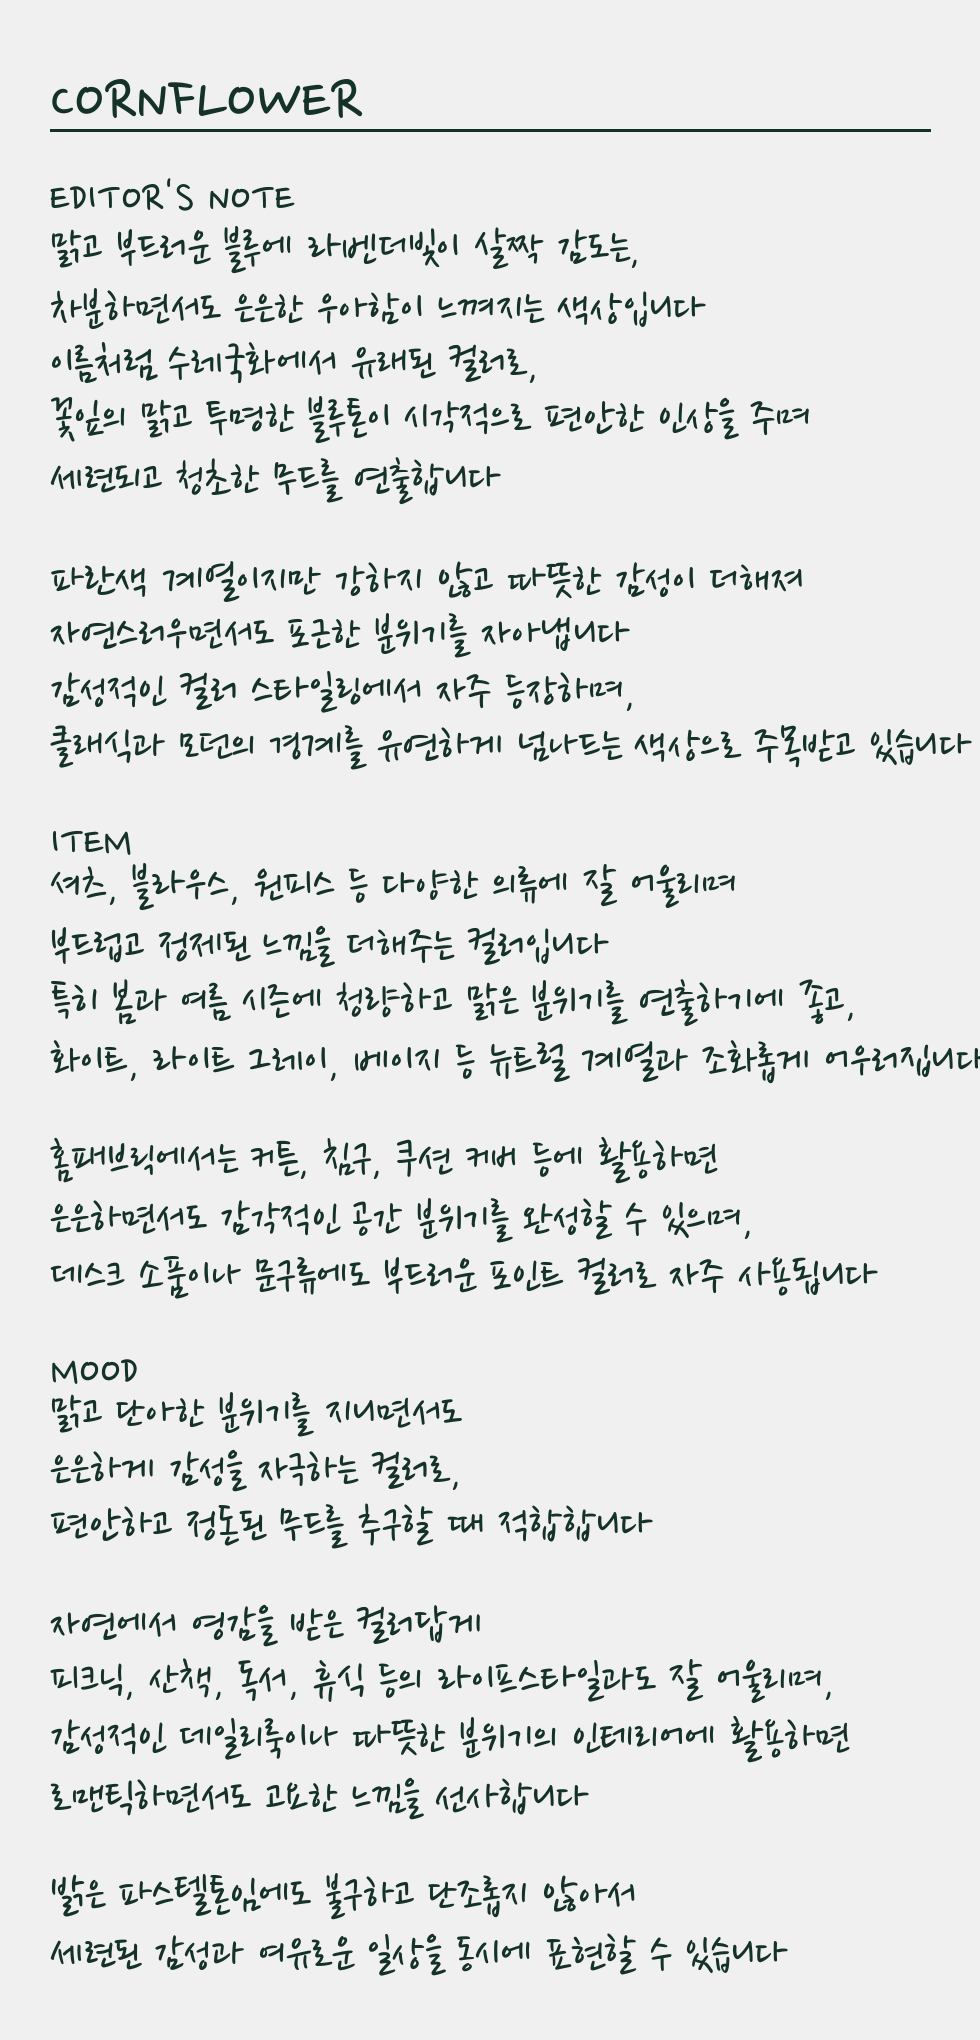 CORNFLOWER
EDITOR'S NOTE
맑고 부드러운 블루에 라벤더빛이 살짝 감도는,
차분하면서도 은은한 우아함이 느껴지는 색상입니다
이름처럼 수레국화에서 유래된 컬러로,
꽃잎의 맑고 투명한 블루톤이 시각적으로 편안한 인상을 주며
세련되고 청초한 무드를 연출합니다
파란색 계열이지만 강하지 않고 따뜻한 감성이 더해져
자연스러우면서도 포근한 분위기를 자아냅니다
감성적인 컬러 스타일링에서 자주 등장하며,
클래식과 모던의 경계를 유연하게 넘나드는 색상으로 주목받고 있습니다
ITEM
셔츠, 블라우스, 원피스 등 다양한 의류에 잘 어울리며
부드럽고 정제된 느낌을 더해주는 컬러입니다
특히 봄과 여름 시즌에 청량하고 맑은 분위기를 연출하기에 좋고,
화이트, 라이트 그레이, 베이지 등 뉴트럴 계열과 조화롭게 어우러집니다
홈패브릭에서는 커튼, 침구, 쿠션 커버 등에 활용하면
은은하면서도 감각적인 공간 분위기를 완성할 수 있으며,
데스크 소품이나 문구류에도 부드러운 포인트 컬러로 자주 사용됩니다
MOOD
맑고 단아한 분위기를 지니면서도
은은하게 감성을 자극하는 컬러로,
편안하고 정돈된 무드를 추구할 때 적합합니다
자연에서 영감을 받은 컬러답게
피크닉, 산책, 독서, 휴식 등의 라이프스타일과도 잘 어울리며,
감성적인 데일리룩이나 따뜻한 분위기의 인테리어에 활용하면
로맨틱하면서도 고요한 느낌을 선사합니다
밝은 파스텔톤임에도 불구하고 단조롭지 않아서
세련된 감성과 여유로운 일상을 동시에 표현할 수 있습니다